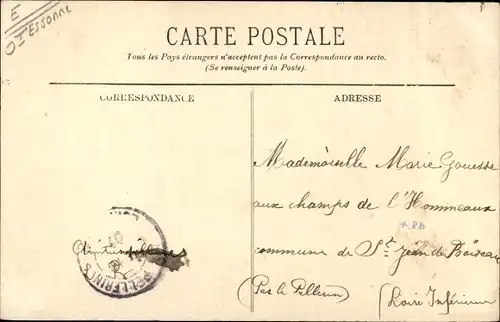 E
Essonne
CARTE POSTALE
Tous les Pays étrangers n'acceptent pas la Correspondance au recto.
(Se renseigner à la Poste).
CORRESPONDANCE
ADRESSE
Mademoiselle Marie Gouesse
aux champs de l'Hommeaux
commune de St Jean de Boiseau
(Par le Pellerin)
(Loire Inférieure